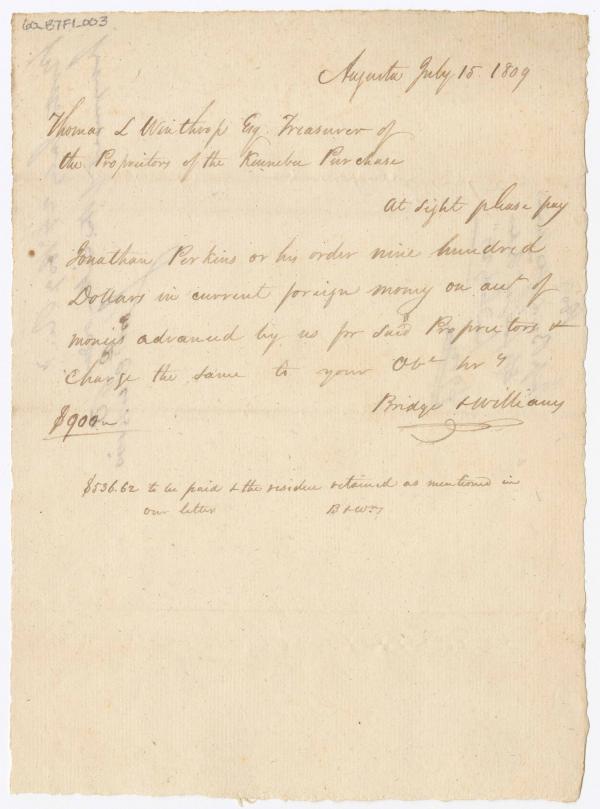 60_B7F1_003
Augusta July 15 1809
Thomas L Winthrop Esq Treasurer of
the Proprietors of the Kennebec Purchase
At sight please pay
Jonathan Perkins or his order nine hundred
Dollars in current foreign money on acct of
monies advanced by us for said Proprietors &
charge the same to your Obt
Bridge & Williams
$900
$536.62 to be paid & the residue retained as mentioned in
our letter B & Ws